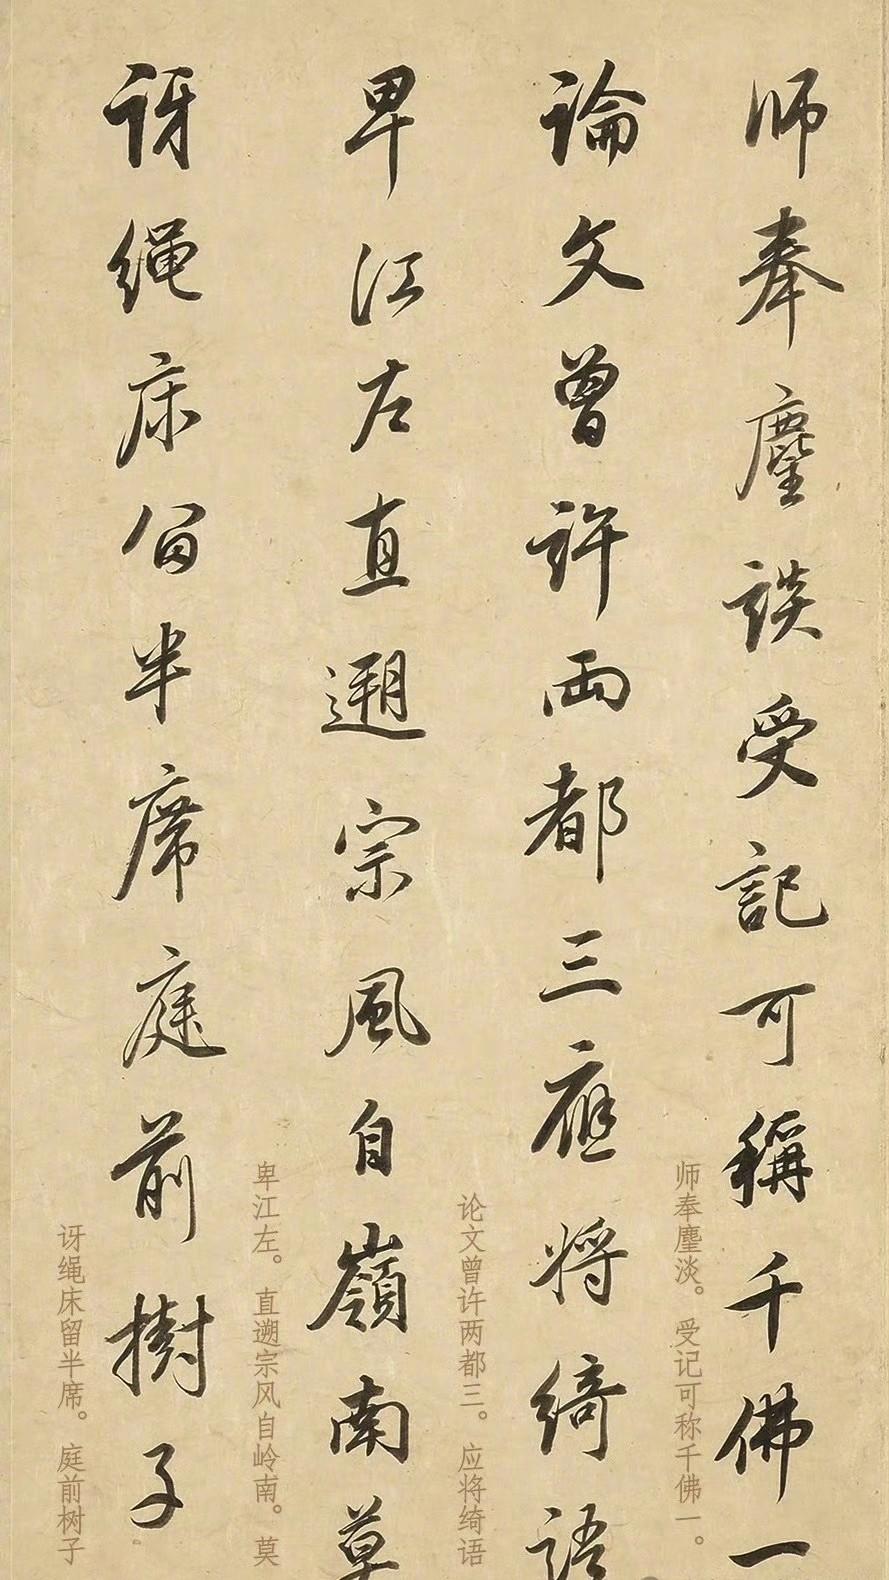 师奉麈谈受記可稱千佛一
論文曾許兩都三應将綺語
卑江左直遡宗風自嶺南莫
讶绳床留半席庭前樹子
师奉麈淡。受记可称千佛一。
论文曾许两都三。应将绮语
卑江左。直遡宗风自岭南。莫
讶绳床留半席。庭前树子